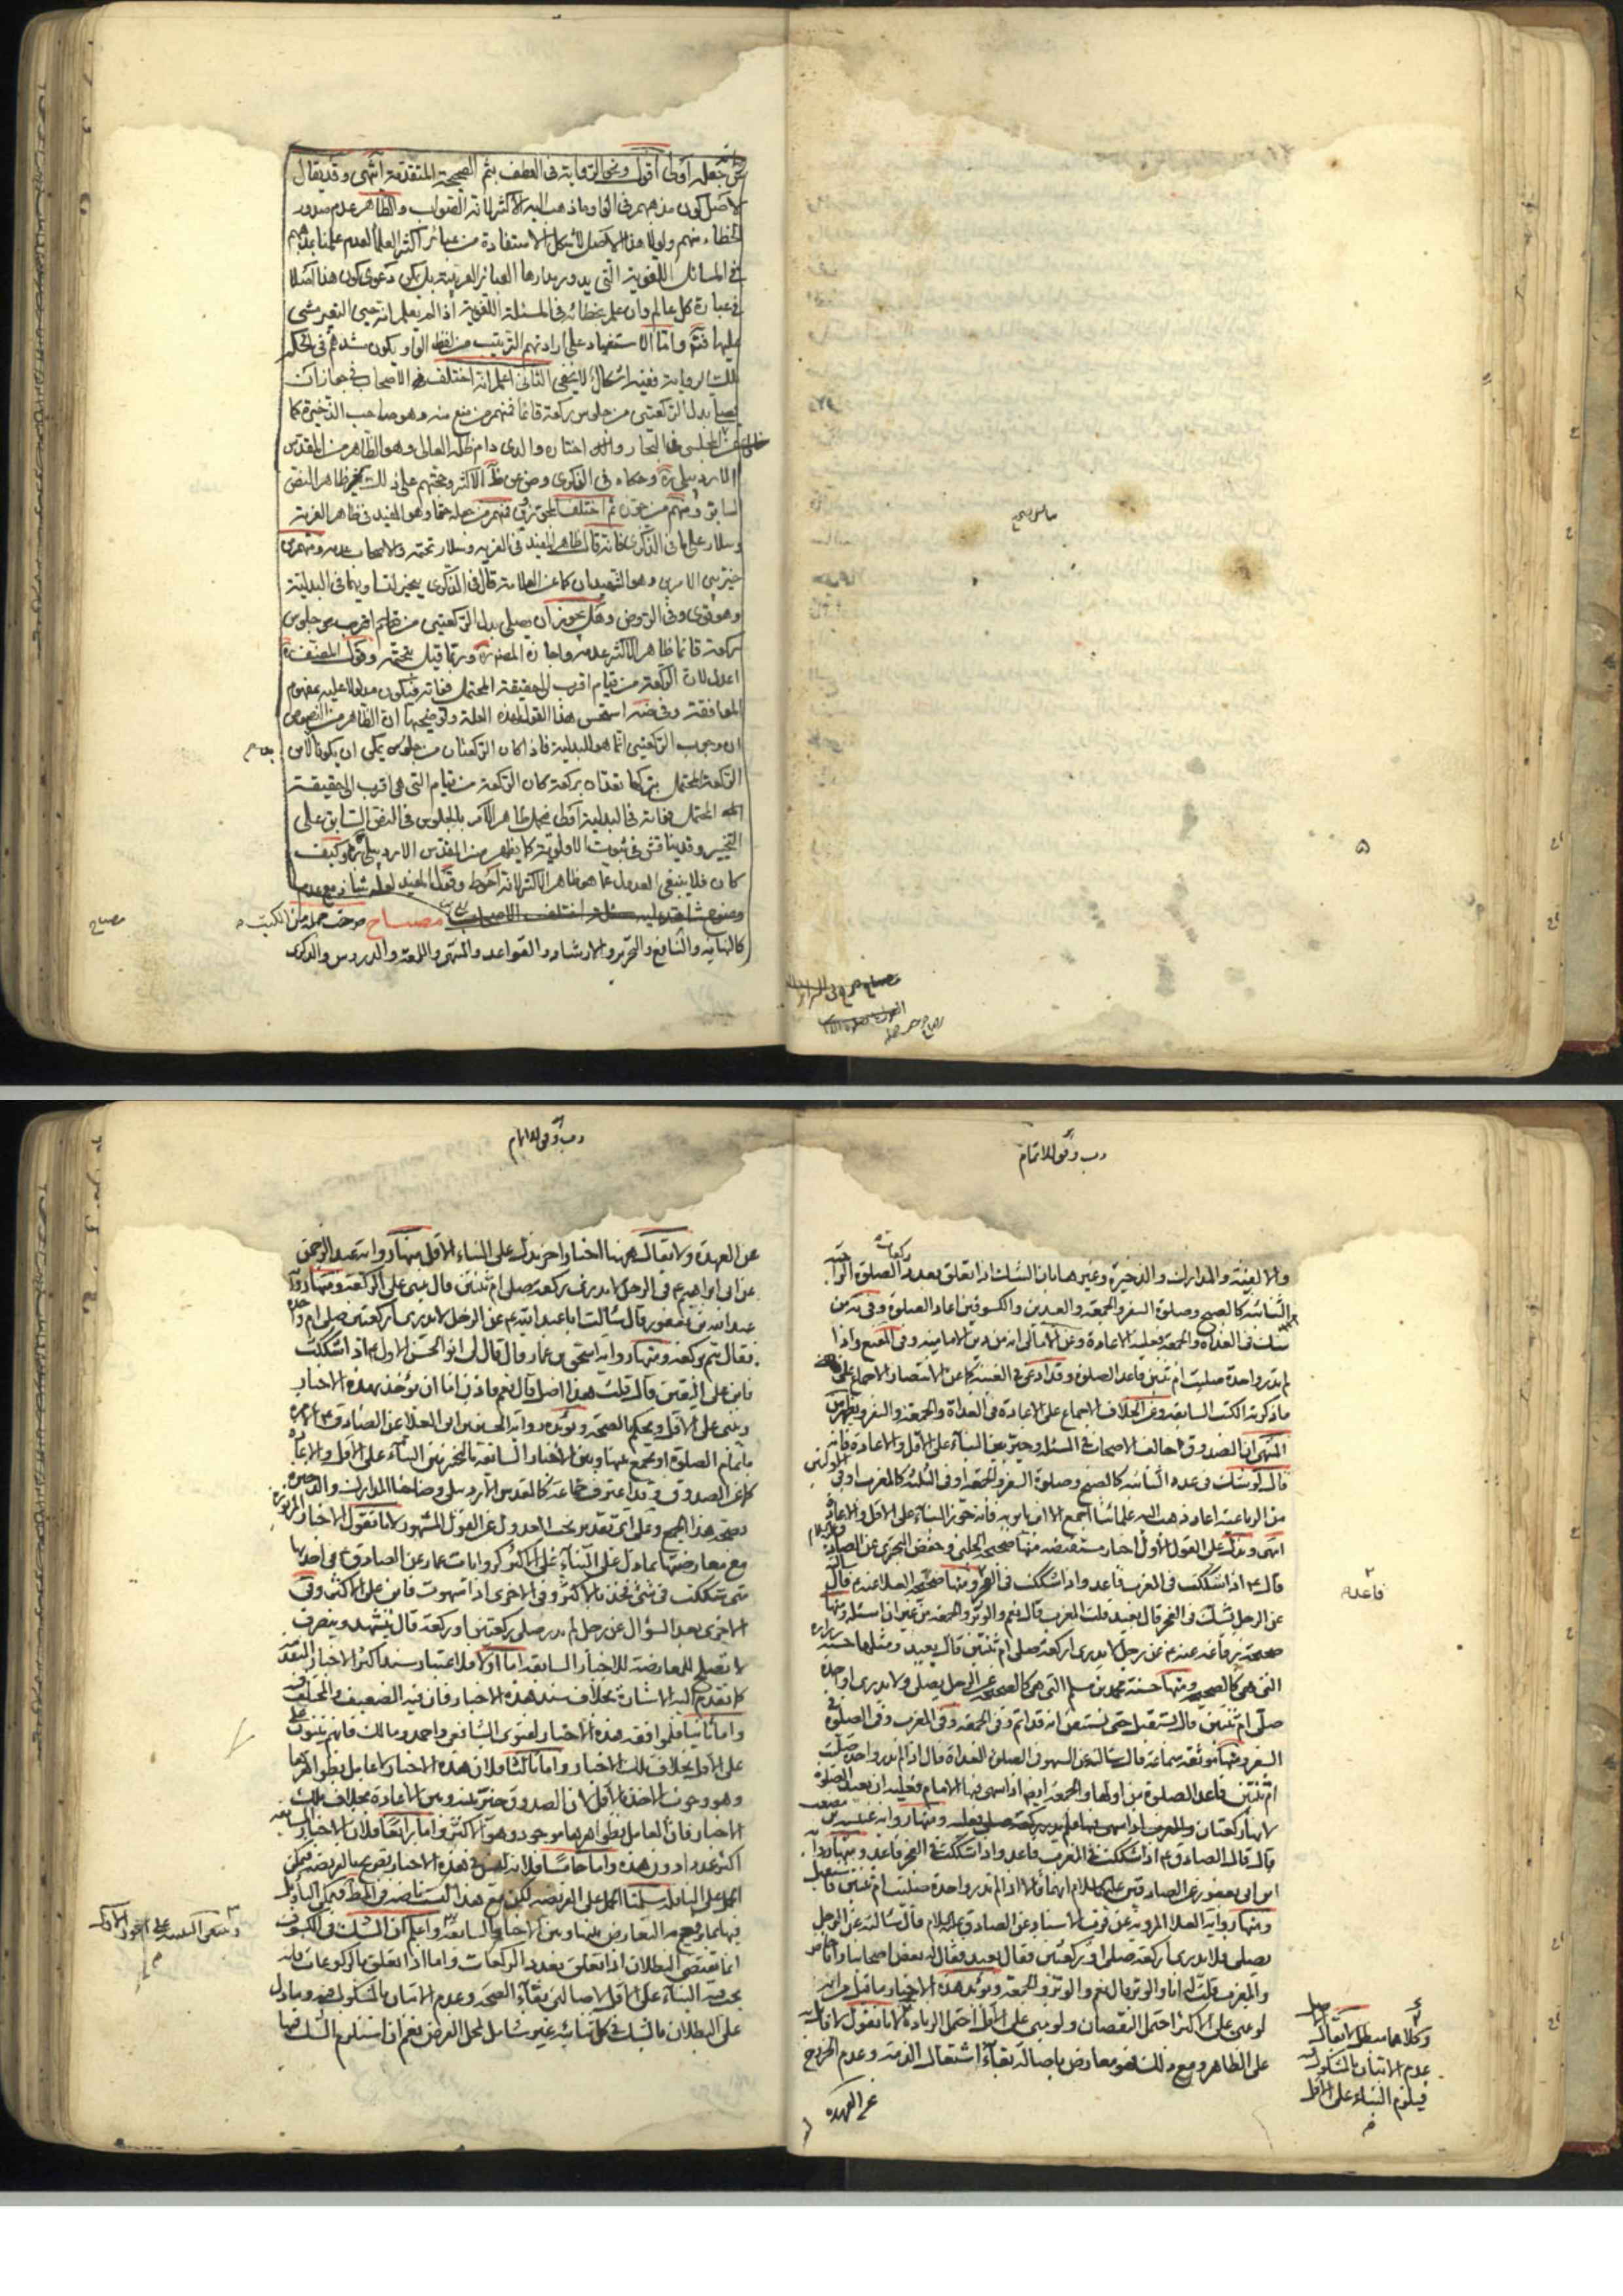 جعله اولى اقول ونحو الرواية فى العطف بثم الصحيحة المتقدمة انتهى وقد يقال
الاصل كون مذهبهم فى الواو ما ذهب اليه الاكثر لانه الصواب والظاهر عدم صدور
الخطاء منهم ولولا هذا الاصل لأشكل الاستفادة من عبائر اكثر العلماء لعدم علمنا
فى المسائل اللغوية التى يدور مدارها العبائر العربية بل يكون دعوى كون هذا اصلا
فى عبارة كل عالم وان علم خطائه فى المسئلة اللغوية اذا لم يعلم انه حين التعبير مشى
عليها فتم واما الاستشهاد على ارادتهم الترتيب من لفظ الواو بكون
تلك الرواية ففيه اشكال لا يخفى الثانى اعلم انه اختلف الاصحاب فى جواز ان
يصلى بدل الركعتين من جلوس ركعة قائما فمنهم من منع منه وهو صاحب الذخيرة كما
المجلسى فى البحار واختاره والدى دام ظله العالى وهو الظاهر من المقدس
الاردبيلى ره وحكاه فى الذكرى عن ظ الاكثر وحجتهم على ذلك ظاهر النص
السابق ومنهم من جوزه ثم اختلف المجوزون فمنهم من جعله حتما وهو المفيد فى ظاهر الغرية
وسلار على ما فى الذكرى فانه قال ظاهر المفيد فى الغرية وسلار تحتمه والاصحاب عدمه ومنهم من
خير بين الامرين وهو الشهيدان كما عن العلامة قال فى الذكرى يتخير لتساويهما فى البدلية
وهو قوى وفى الروض وهل يجوز ان يصلى بدل الركعتين من جلوس
ركعة قائما ظاهر الاكثر عدمه واجازه المصنف ره وربما قيل بتحتمه وقول المصنف ره
اعدل لان الركعة من قيام اقرب الى حقيقة المحتمل فواته فيكون مدلولا عليه بمفهوم
الموافقة وفى ضه استحسن هذا القول لهذه العلة وتوضيحها ان الظاهر من النصوص
ان وجوب الركعتين انما هو للبدلية فاذا كان الركعتان من جلوس يمكن ان يكونا بدلا من
الركعة المحتمل تركها بعدّه بركعة كان الركعة من قيام التى هى اقرب الى حقيقة
المحتمل فواته فى البدلية اولى فيحمل ظاهر الامر بالجلوس فى النص السابق على
التخيير وقد يناقش فى ثبوت الاولوية كما يظهر من المقدس الاردبيلى ره وكيف
كان فلا ينبغى العدول عما هو ظاهر الاكثر لانه احوط وقول المفيد لعله شاذ مع عدم
وضوح شاهد عليه مصباح صرح جملة من الكتب
كالنهاية والنافع والتحرير والارشاد والقواعد والمنتهى واللمعة والدروس والذكرى
مصباح
قاعدة
والالفية والمدارك والذخيرة وغيرها بان الشك اذا تعلق بعدد ركعات الصلوة الواجبة
الثنائية كالصبح وصلوة السفر والجمعة والعيدين والكسوفين اعاد الصلوة وفى يه من
شك فى الغداة والجمعة فعليه الاعادة وعن الامالى انه من دين الامامية وفى المقنع واذا
لم تدر واحدة صليت ام ثنتين فاعد الصلوة وقد ادعى فى الغنية كما عن الانتصار الاجماع على
ما ذكرته الكتب السابقة وعن الخلاف الاجماع على الاعادة فى الغداة والجمعة والسفر ويظهر من
المنتهى ان الصدوق خالف الاصحاب فى المسئلة وخير بين البناء على الاقل والاعادة فانه
قال لو شك فى عدد الثنائية كالصبح وصلوة السفر والجمعة او فى الثلاثية كالمغرب او فى الاولتين
من الرباعية اعاد ذهب اليه علمائنا اجمع الا ابن بابويه فانه جوز البناء على الاقل والاعادة
انتهى ويدل على القول الاول اخبار مستفيضة منها صحيحة الحلبى وحفص البخترى عن الصادق
قال اذا شككت فى المغرب فاعد واذا شككت فى الفجر فاعد ومنها صحيحة العلا عنه قال
عن الرجل يشك فى الفجر قال يعيد قلت المغرب قال نعم والوتر والجمعة من غير ان اسئله ومنها
صحيحة رفاعة عنه عن رجل لا يدرى اركعة صلى ام ثنتين قال يعيد ومثلها حسنة
التى هى كالصحيحة ومنها حسنة محمد بن مسلم التى هى كالصحيحة عن الرجل يصلى ولا يدرى اواحدة
صلى ام ثنتين قال يستقبل حتى يستيقن انه قد اتم وفى الجمعة وفى المغرب وفى الصلوة فى
السفر ومنها موثقة سماعة قال سالته عن السهو فى الصلوة الغداة قال اذا لم تدر واحدة صليت
ام ثنتين فاعد الصلوة من اولها والجمعة ايضا اذا سهى فيها الامام فعليه ان يعيد الصلوة
لانها ركعتان والمغرب اذا سهى فيها فلم يدر كم ركعة صلى فعليه ومنها رواية عنبسة بن مصعب
قال قال الصادق اذا شككت فى المغرب فاعد واذا شككت فى الفجر فاعد ومنها رواية
ابن ابى يعفور عن الصادقين عليهما السلام انهما قالا اذا لم تدر واحدة صليت ام ثنتين فاستقبل
ومنها رواية العلا المروية عن قرب الاسناد عن الصادق عليه السلام قال سالته عن الرجل
يصلى فلا يدرى اركعة صلى او ركعتين فقال يعيد فقال له بعض اصحابنا وانا حاضر
والمغرب قلت له انا والوتر قال نعم والوتر والجمعة ويؤيد هذه الاخبار ما قيل من انه
لو بنى على الاكثر احتمل النقصان ولو بنى على الاقل احتمل الزيادة لانا نقول
على الظاهر ومع ذلك فهو معارض باصالة بقاء اشتغال الذمة وعدم الخروج
عن العهدة
وكلاهما مبطل لا يقال الاصل
عدم الاتيان بالمشكوك فيه
فيلزم البناء على الاقل
عن العهدة ولا يقال هيهنا اخبار اخر تدل على البناء على الاقل منها رواية عبد الرحمن
عن ابى ابراهيم فى الرجل لا يدرى ركعة صلى ام ثنتين قال يبنى على الركعة ومنها رواية
عبد الله بن ابى يعفور قال سالت ابا عبد الله عن الرجل لا يدرى اركعتين صلى ام واحدة
فقال يتم بركعة ومنها رواية اسحق بن عمار قال قال لى ابو الحسن الاول اذا شككت
فابن على اليقين قال قلت هذا اصل قال نعم فاذن اما ان يؤخذ بهذه الاخبار
ويبنى على الاقل ويحكم بالصحة ويؤيده رواية الحسين بن ابى العلا عن الصادق
باتمام الصلوة او يجمع بينها وبين الاخبار السابقة بالتخيير بين البناء على الاقل والاعادة
كما عن الصدوق وقد اعترف جماعة كالمقدس الاردبيلى وصاحبا المدارك والذخيرة
بصحة هذا الجمع وعلى اى تقدير يجب العدول عن القول المشهور لانا نقول الاخبار المزبورة
مع معارضتها بما دل على البناء على الاكثر كروايات عمار عن الصادق فى احديها
متى شككت فى شئ فخذ بالاكثر وفى الاخرى اذا سهوت فابن على الاكثر وفى
الاخرى بعد السؤال عن رجل لم يدر صلى ركعتين او ركعة قال يتشهد وينصرف
لا تصلح للمعارضة للاخبار السابقة اما اولا فلاعتبار سند اكثر الاخبار المتقدمة
كما تقدم اليه الاشارة بخلاف سند هذه الاخبار فان فيه الضعيف والمختلف فيه
واما ثانيا فلموافقة هذه الاخبار لفتوى الشافعى واحمد ومالك فانهم يبنون
على الاقل بخلاف تلك الاخبار واما ثالثا فلان هذه الاخبار لا عامل بظواهرها
وهو وجوب الاخذ بالاقل لان الصدوق خير بينه وبين الاعادة بخلاف تلك
الاخبار فان العامل بظواهرها موجود وهو الاكثر واما رابعا فلان الاخبار السابقة
اكثر عددا من هذه واما خامسا فلانه ليس فى هذه الاخبار تصريح بالفريضة فيمكن
الحمل على النافلة سلمنا الحمل على الفريضة لكن مع هذا ليست ناصة فى المط فيمكن التاويل
فيها بما يرفع به التعارض بينها وبين الاخبار السابقة واعلم ان الشك فى الكسوف
انما يقتضى البطلان اذا تعلق بعدد الركعات واما اذا تعلق بالركوعات فانه
يجب فيه البناء على الاقل لاصالتى بقاء الصحة وعدم الاتيان بالمشكوك فيه وما دل
على البطلان بالشك فى كل ثنائية غير شامل لمحل الفرض نعم ان استلزم الشك فيها